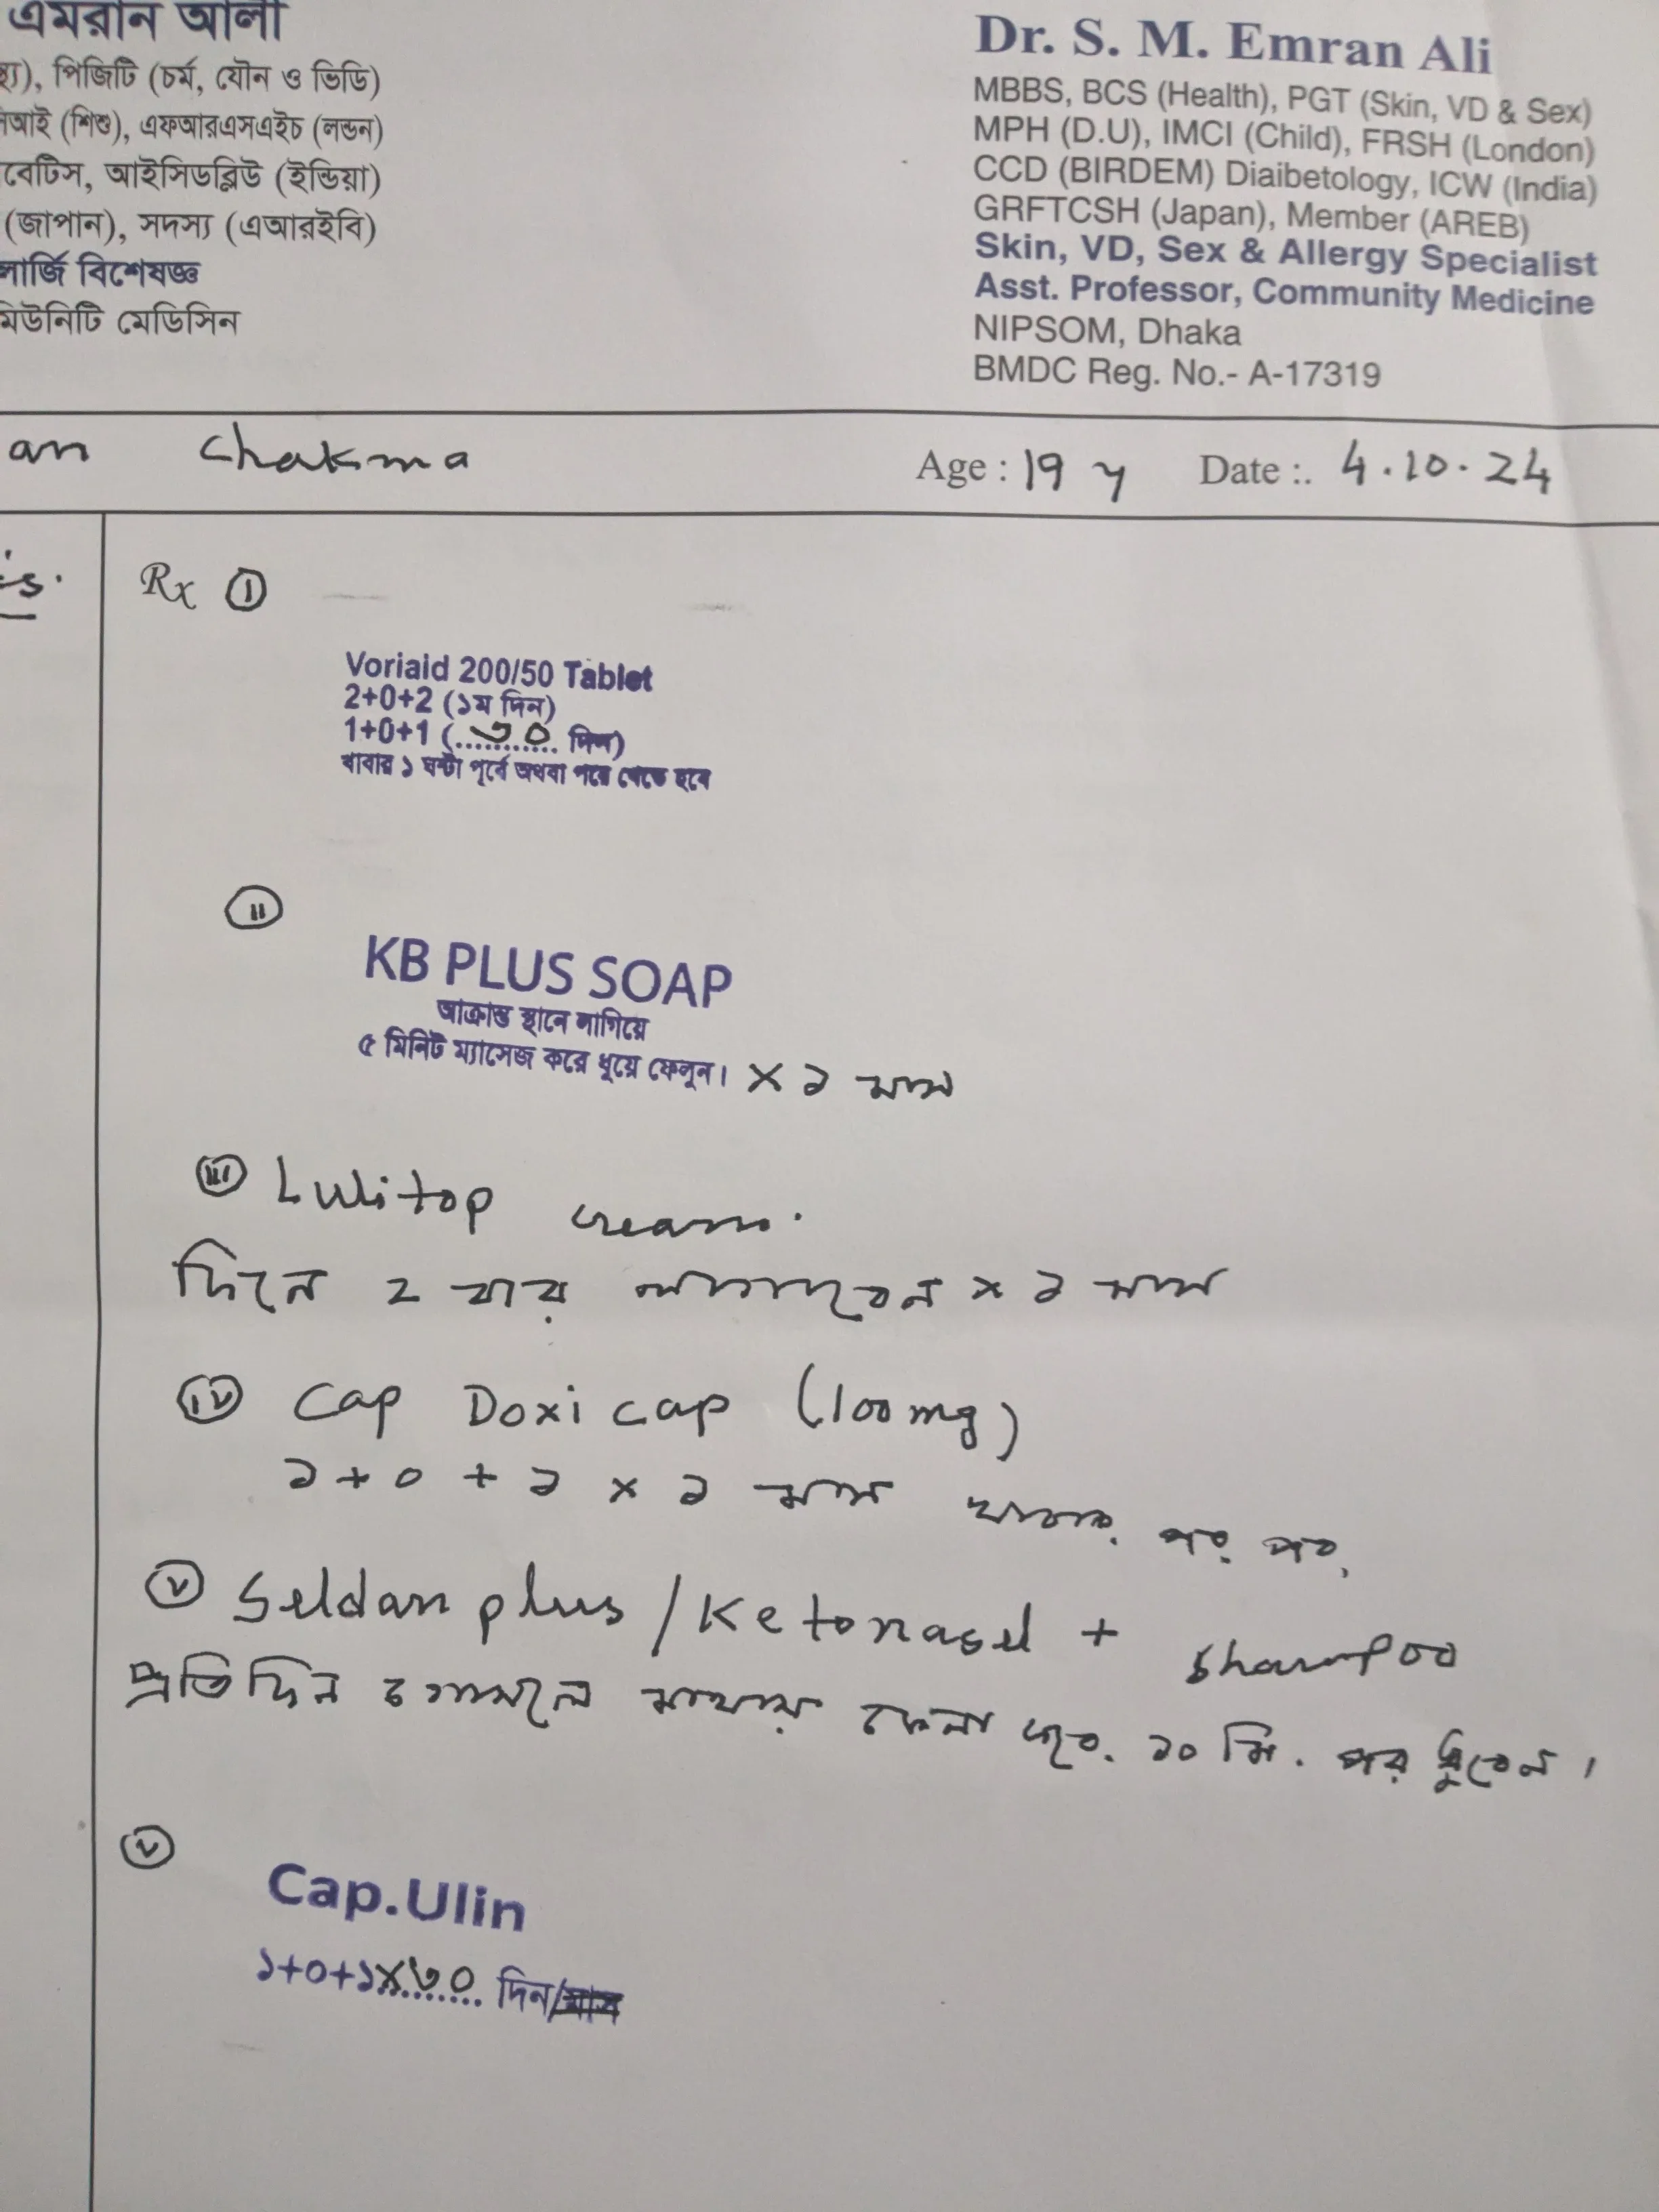 এমরান আলী
), পিজিটি (চর্ম, যৌন ও ভিডি)
আই (শিশু), এফআরএসএইচ (লন্ডন)
বেটিস, আইসিডব্লিউ (ইন্ডিয়া)
(জাপান), সদস্য (এআরইবি)
লার্জি বিশেষজ্ঞ
মিউনিটি মেডিসিন
Dr. S. M. Emran Ali
MBBS, BCS (Health), PGT (Skin, VD & Sex)
MPH (D.U), IMCI (Child), FRSH (London)
CCD (BIRDEM) Diaibetology, ICW (India)
GRFTCSH (Japan), Member (AREB)
Skin, VD, Sex & Allergy Specialist
Asst. Professor, Community Medicine
NIPSOM, Dhaka
BMDC Reg. No.- A-17319
an Chakma Age : 19 y Date :. 4.10.24
Rx (i)
Voriaid 200/50 Tablet
2+0+2 (১ম দিন)
1+0+1 (...৩০... দিন)
খাবার ১ ঘন্টা পূর্বে অথবা পরে খেতে হবে
(ii)
KB PLUS SOAP
আক্রান্ত স্থানে লাগিয়ে
৫ মিনিট ম্যাসেজ করে ধুয়ে ফেলুন। × ১ মাস
(iii) Lulitop cream.
দিনে ২ বার লাগাবেন × ১ মাস
(iv) Cap Doxicap (100mg)
১+০+১ × ১ মাস খাবার পর পর
(v) Seldan plus / Ketonasel + shampoo
প্রতিদিন গোসলে মাথায় ফেনা করে ১০ মি. পর ধুবেন।
(v)
Cap.Ulin
১+০+১×৩০ দিন/মাস